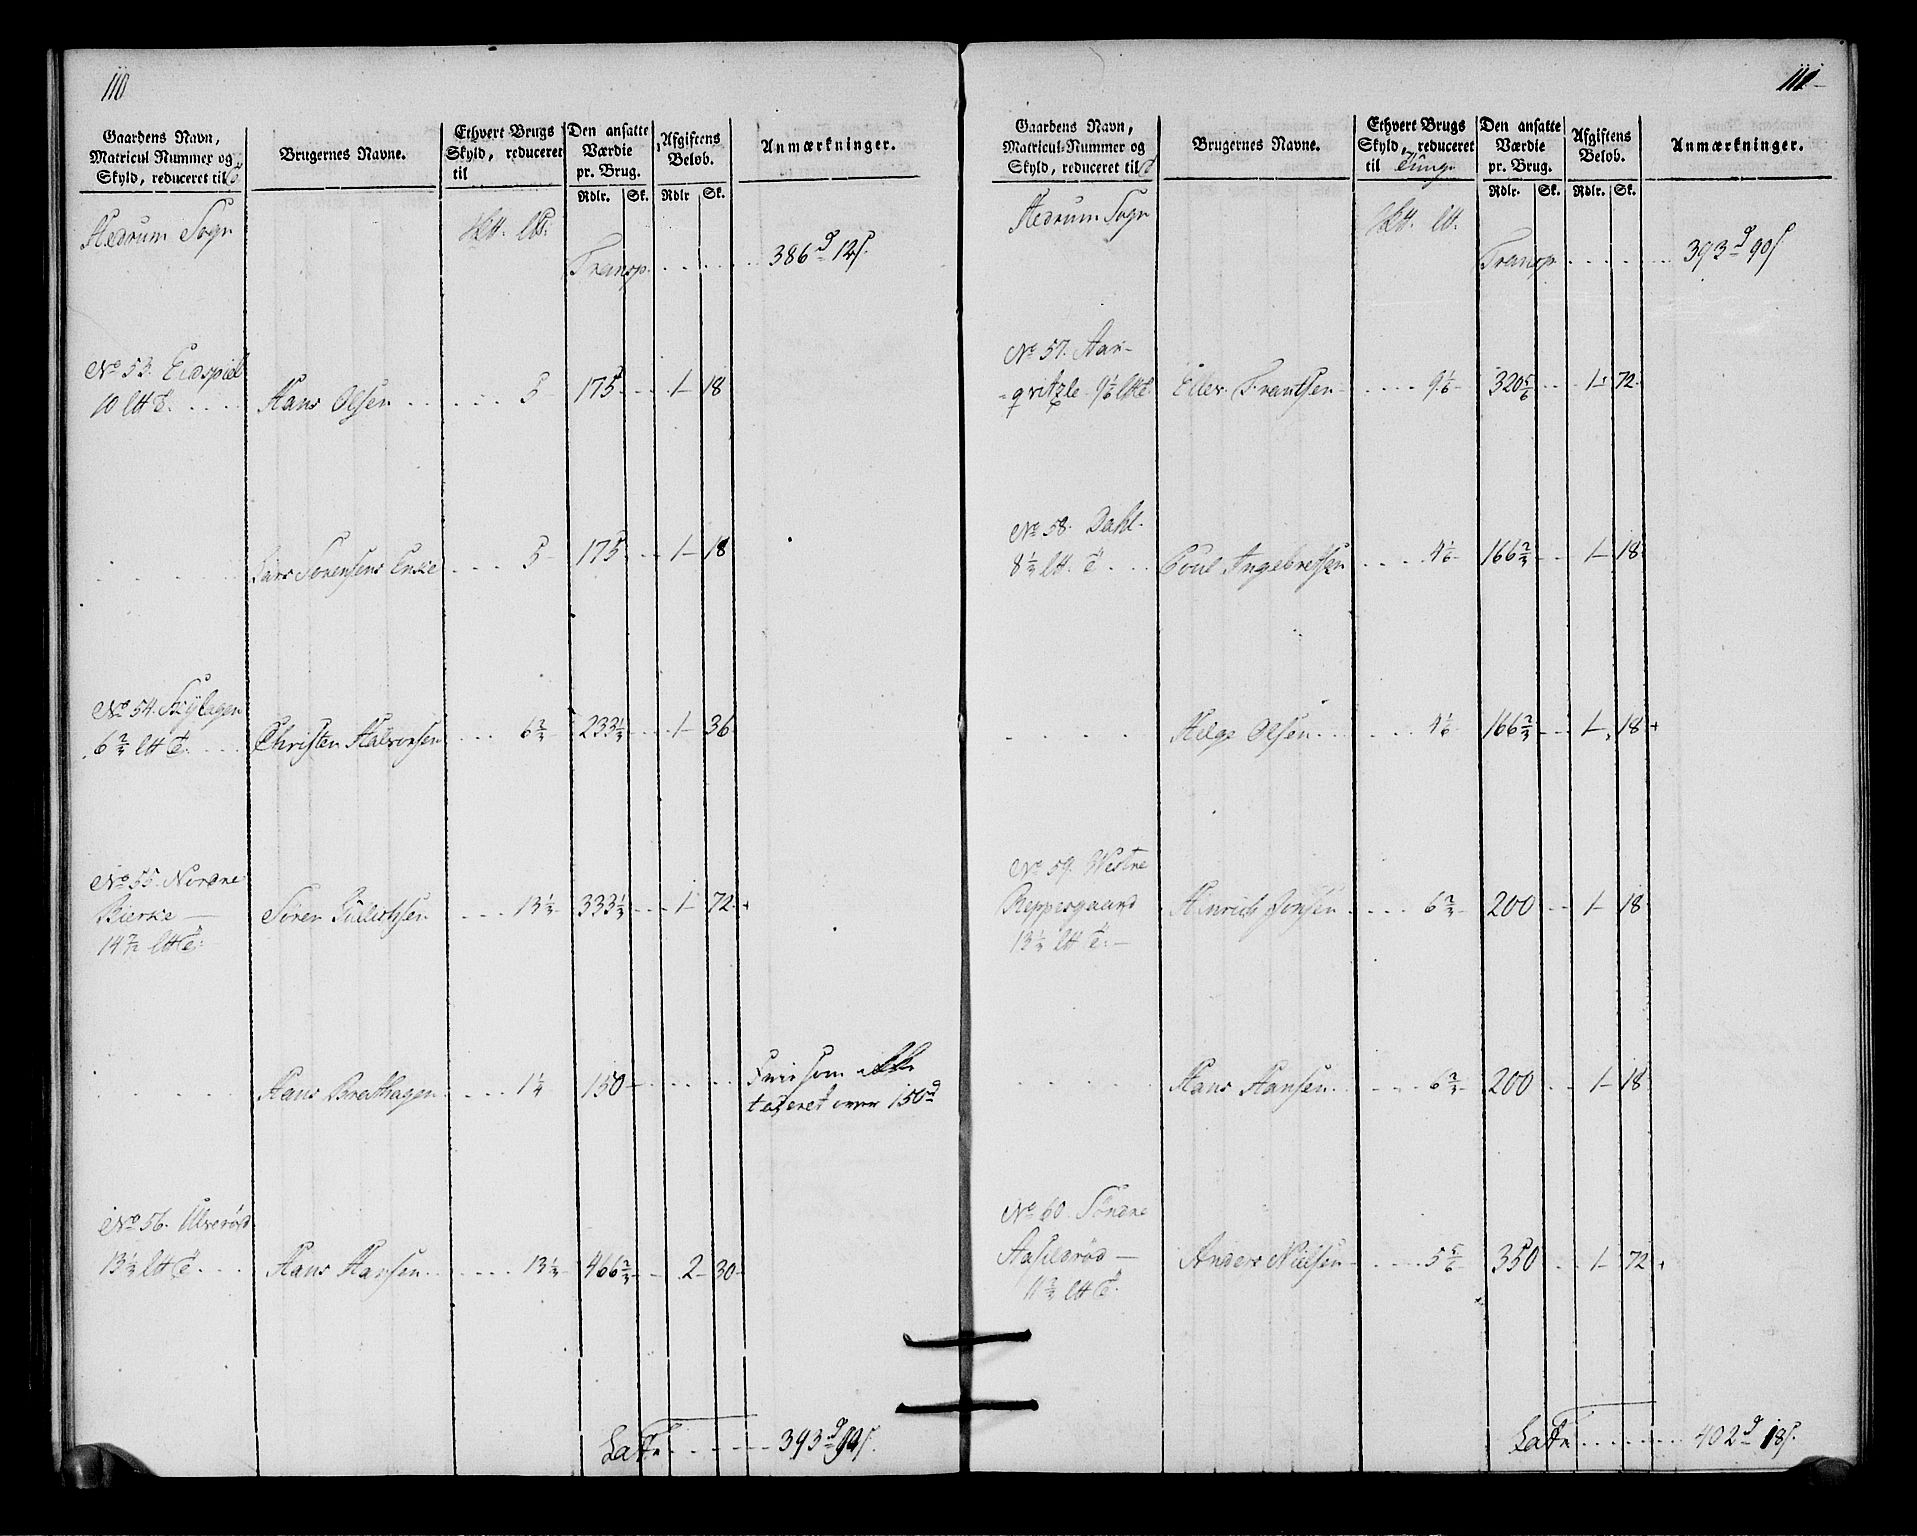 110
Gaardens Navn, Matricul Nummer og Skyld, reduceret til
Brugernes Navne.
Ethvert Brugs Skyld, reduceret til
Den ansatte Værdie pr. Brug.
Rdlr. Sk.
Afgiftens Beløb.
Rdlr Sk.
Anmærkninger.
Hedrum Sogn
Transp. . . . . . 386 d 12 s.
No 53. Eidspiel
10 . . . . Hans Olsen . . . . . . 5 175 - - 1 - 18
. . . . . Lars Sørensens Enke . . . . 5 - 175 - - 1 - 18
No 54.
6 2/3 . . . Christen Halvorsen . . . 6 2/3 - 233 1/3 - - 1 - 36
No 55. Nordre
Bierke — Søren . . . 13 1/3 - 333 1/3 - - 1 - 72 -
14 7/12
. . . . . Hans Bredthagen . . . . 1 1/4 150 - . . . . Frie som ikke
taxeret over 150 d
No 56. Ulverød
13 1/3 . . . Hans Hansen . . . . . 13 1/3 - 466 2/3 - - 2 - 30 -
Latr. . . . . . 393 d 90 s.
111
Gaardens Navn, Matricul-Nummer og Skyld, reduceret til
Brugernes Navne.
Ethvert Brugs Skyld, reduceret til Tunge
Den ansatte Værdie pr. Brug.
Rdlr. Sk.
Afgiftens Beløb.
Rdlr. Sk.
Anmærkninger.
Hedrum Sogn
Transp. . . . . . 393 d 90 s
No 57. Aar-
-qvitzle 9 1/6 Eller Frantsen - . . . . 9 1/6 - 320 5/6 - - 1 - 72 -
No 58. Dahl.
8 1/3 . . . Poul Ingebretsen . . . . 4 1/6 - 166 2/3 - - 1 - 18
. . . . Helge Olsen . . . . . 4 1/6 166 2/3 - - 1 - 18
No 59. Westre
Reppesgaard Hinrich Jonsen . . . . 6 2/3 - 200 - - 1 - 18
13 1/3
. . . . Hans Hansen . . . . 6 2/3 - 200 - - 1 - 18
No 60. Søndre
Hasledrød — Anders Nielsen - . . . . 5 5/6 350 - - 1 - 72
11 2/3
Latr. . . . . . 402 d 18 s.